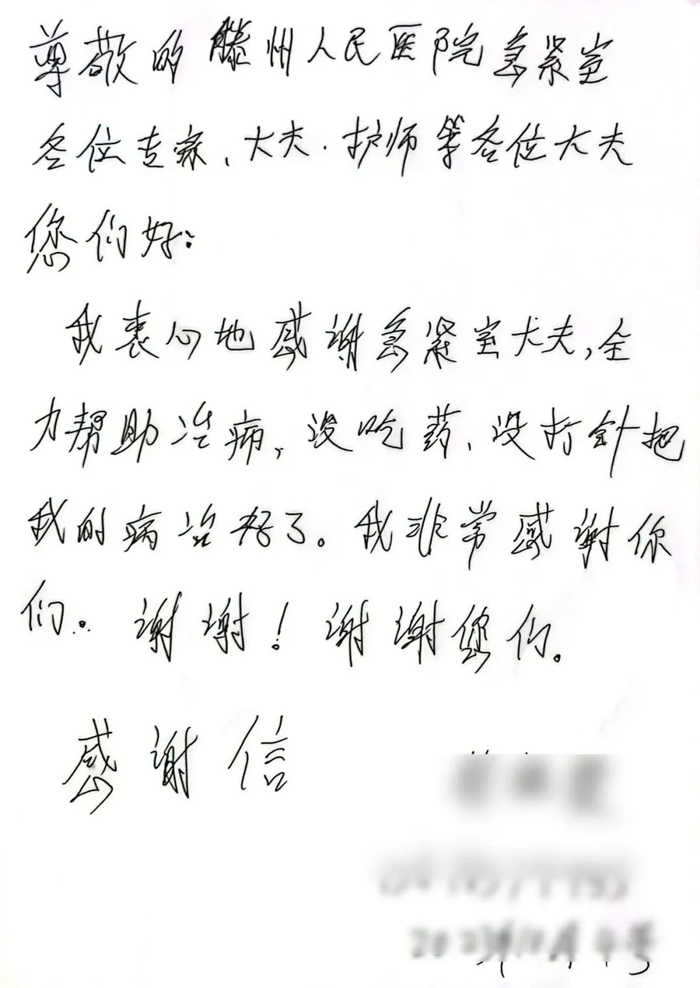 尊敬的滕州人民医院急紧室
各位专家、大夫.护师等各位大夫
您们好:
我衷心地感谢急紧室大夫,全
力帮助治病,没吃药、没打针把
我的病治好了。我非常感谢你
们。谢谢!谢谢您们。
感谢信
2023年10月4号